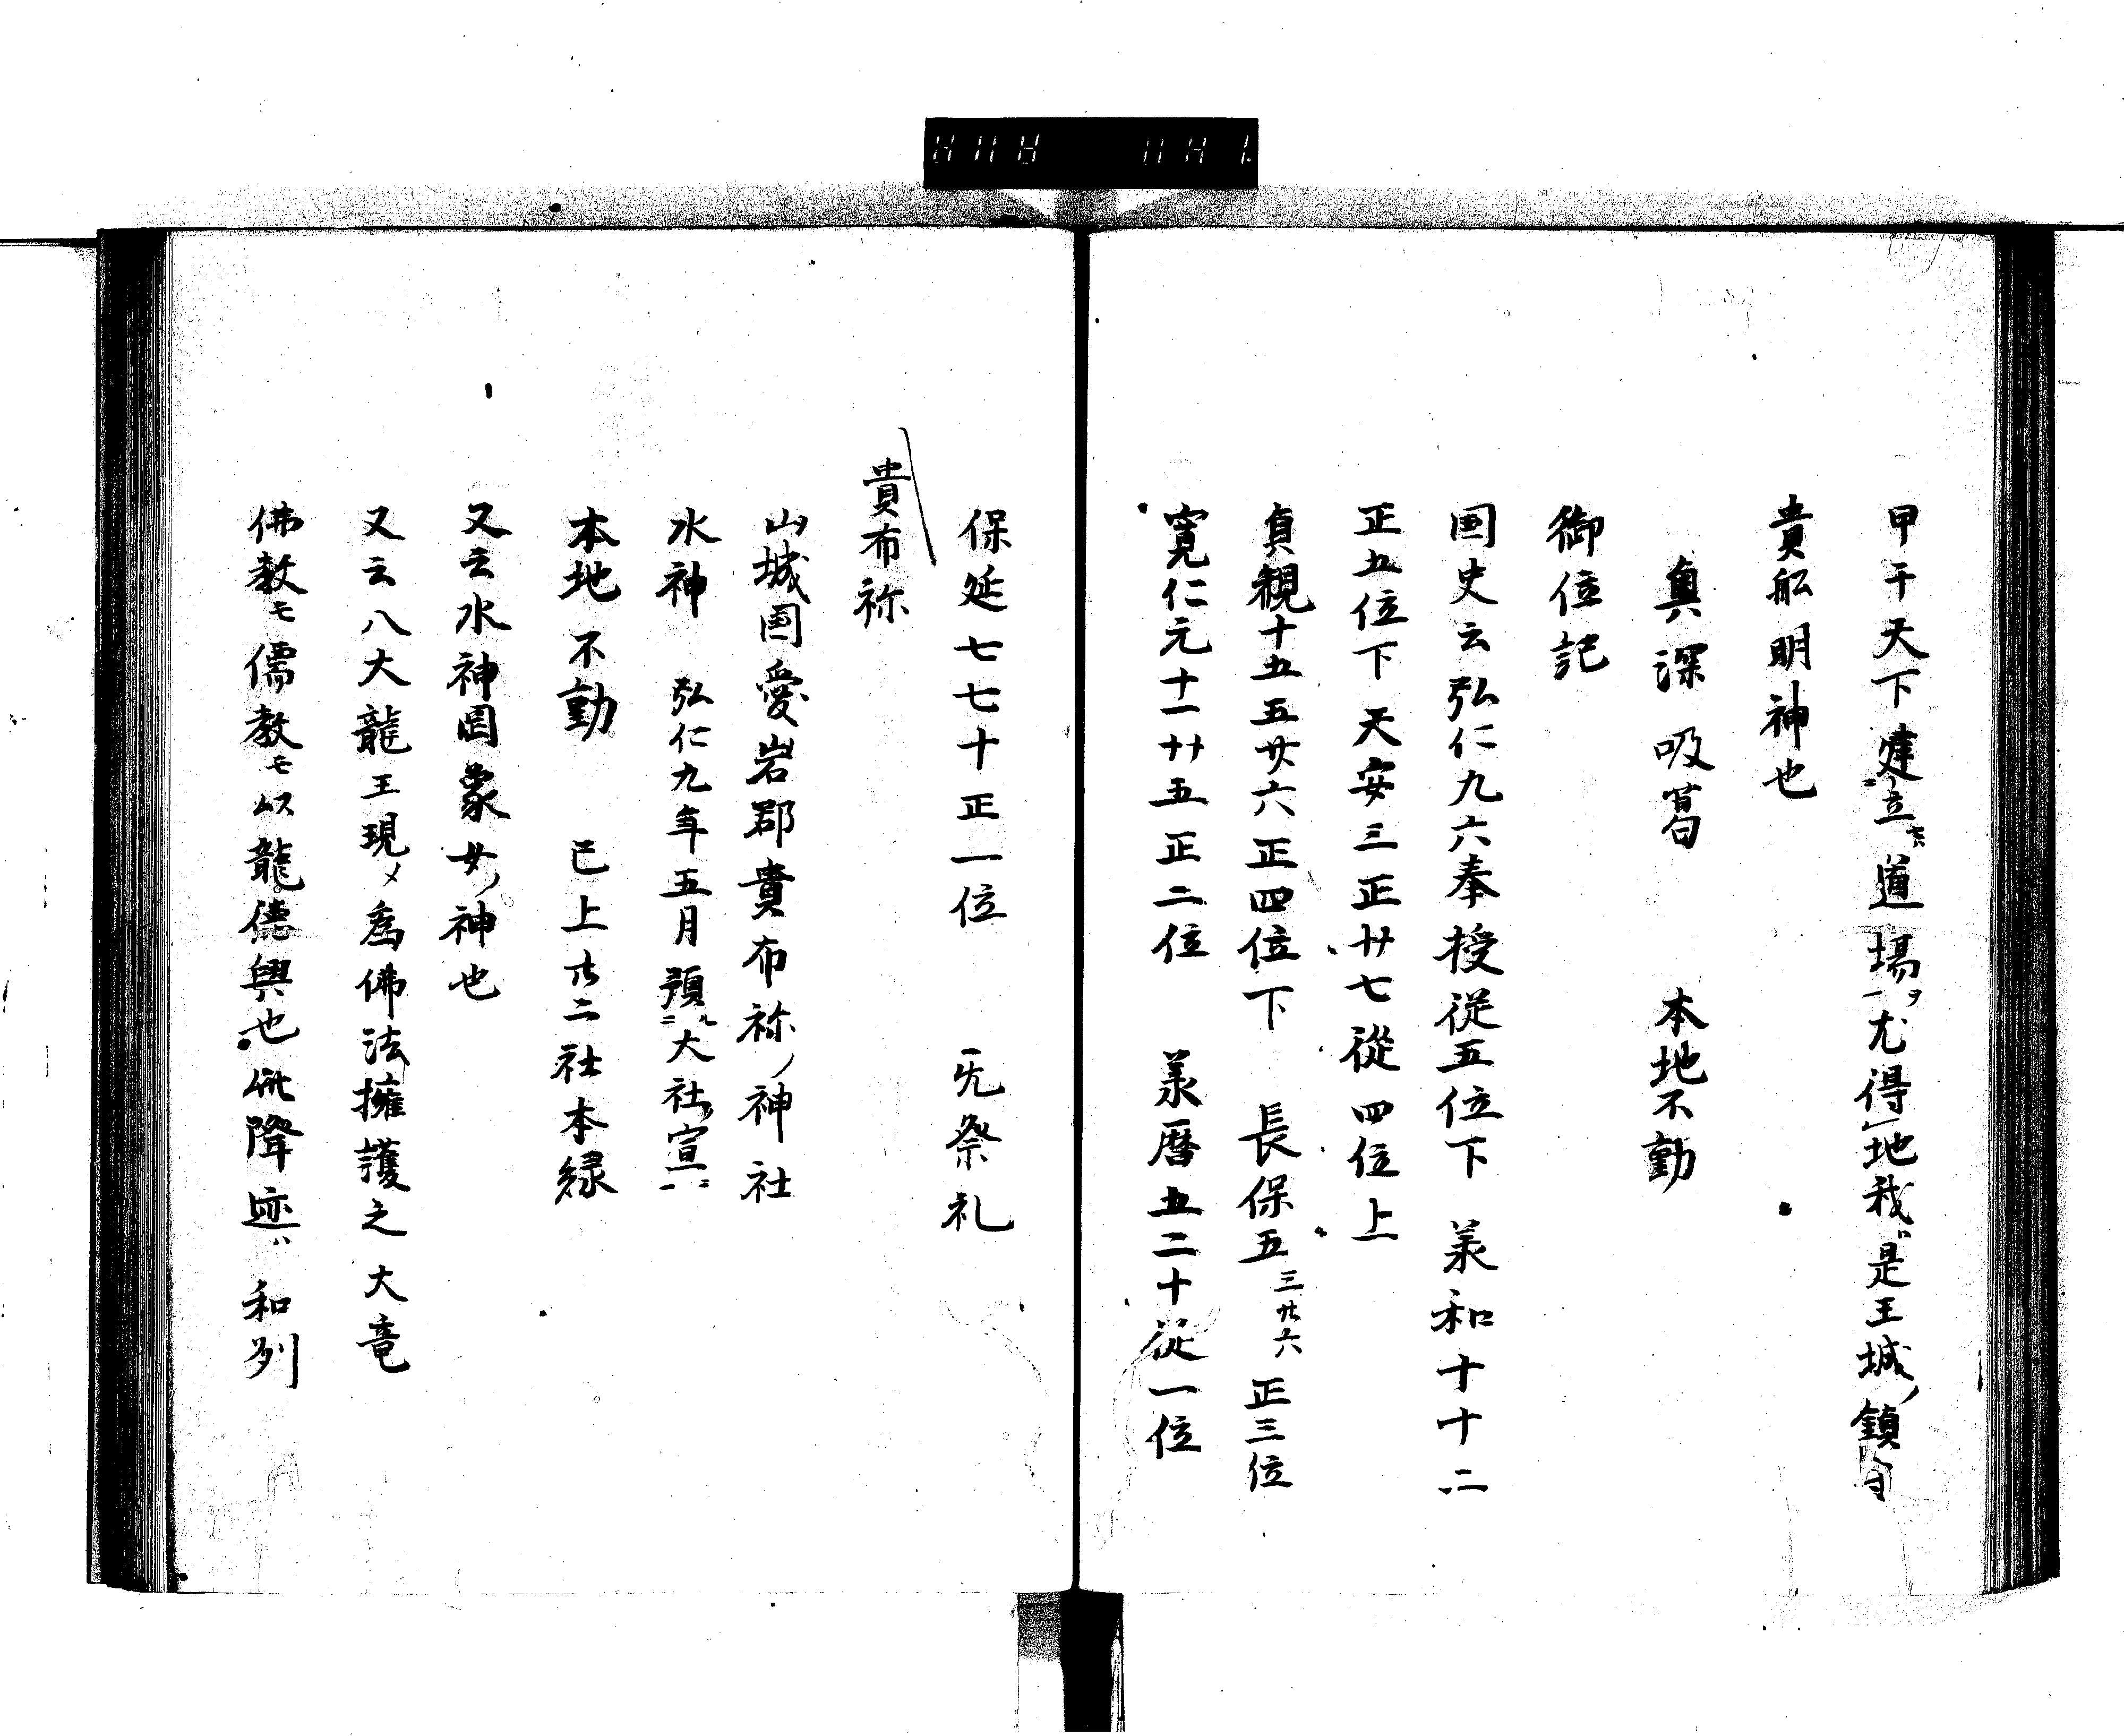 甲于天下建立道場ヲ一尤得地我ハ是王城ノ鎮守
貴舩明神也
奥深吸葛　本地不動
御位記
国史云弘仁九六奉授従五位下　羕和十十二
正五位下天安三正廿七從四位上
貞観十五五廿六正四位下　長保五三廿六正三位
寛仁元十一廿五正二位　羕暦五二十従一位
保延七七十正一位　旡祭礼
貴布祢
山城国愛岩郡貴布祢ノ神社
水神　弘仁九年五月預ル二大社ニ宣一
本地不動　已上廿二社本緑
又云水神罔象女ノ神也
又云八大龍王現メ為佛法擁護之大竜
佛教モ儒教モ以龍徳興也仏降迹ハ和列